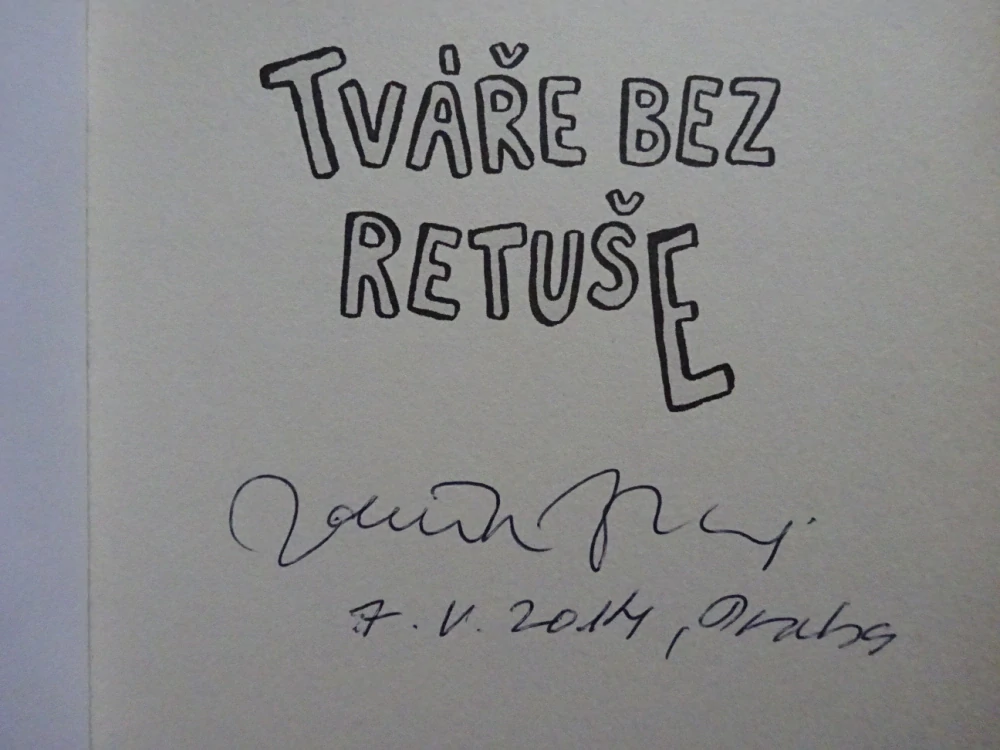 TVÁŘE BEZ
RETUŠE
7. V. 2014, Praha